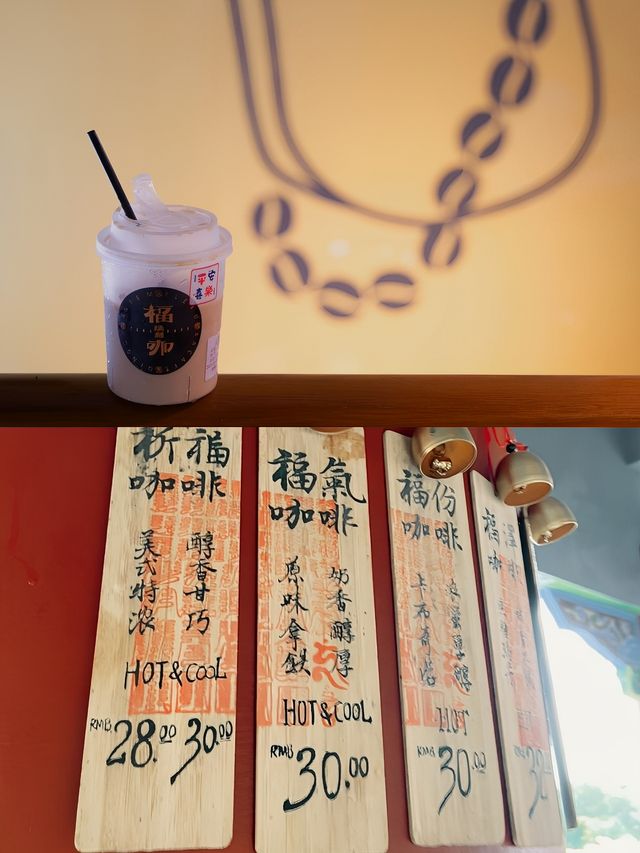 平安
喜樂
福
咖
祈福
咖啡
美式特浓
醇香甘巧
HOT&COOL
RMB 28.00 30.00
福氣
咖啡
原味拿鉄
奶香醇厚
HOT&COOL
RMB 30.00
福份
咖啡
卡布奇诺
HOT
RMB 30.00
福澤
咖啡
32